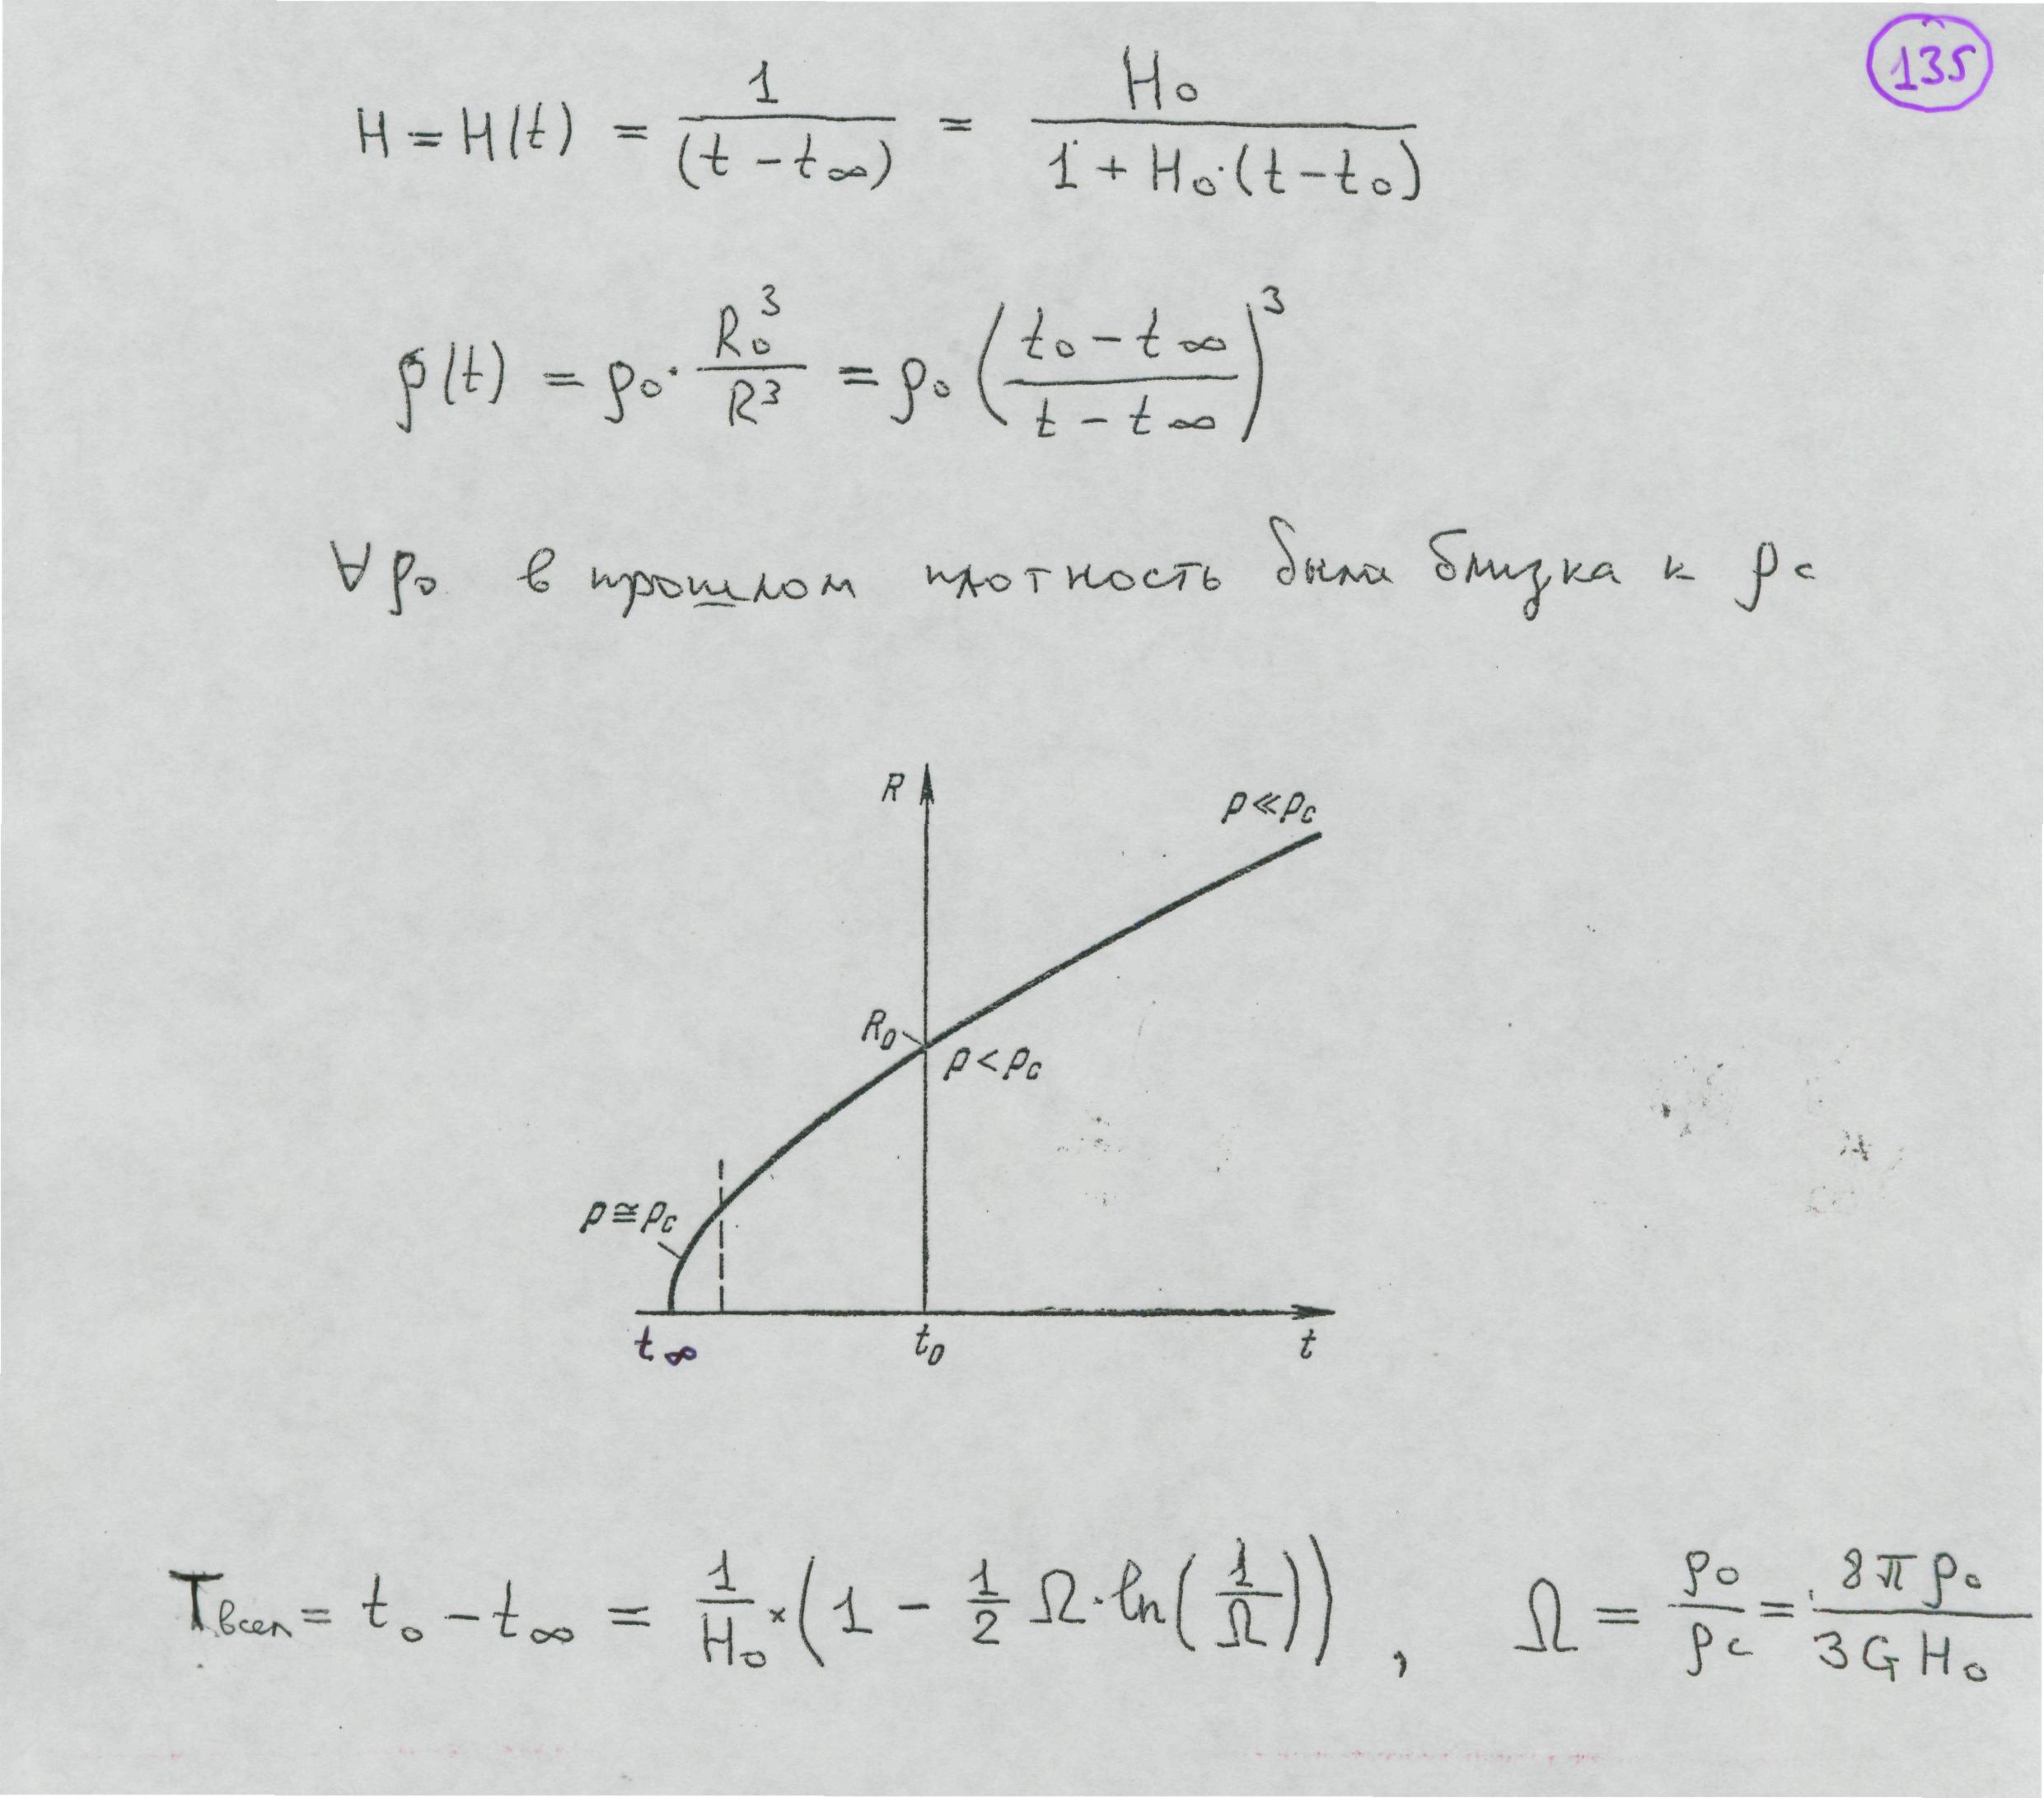 135
H = H(t) = 1/(t - t∞) = H₀/(1 + H₀·(t - t₀))
ρ(t) = ρ₀ · R₀³/R³ = ρ₀ ((t₀ - t∞)/(t - t∞))³
∀ρ₀ в прошлом плотность была близка к ρc
R
ρ≪ρc
R₀
ρ<ρc
ρ≅ρc
t∞ t₀ t
Tвсел = t₀ - t∞ = 1/H₀ × (1 - 1/2 Ω·ln(1/Ω)), Ω = ρ₀/ρc = 8πρ₀/3GH₀